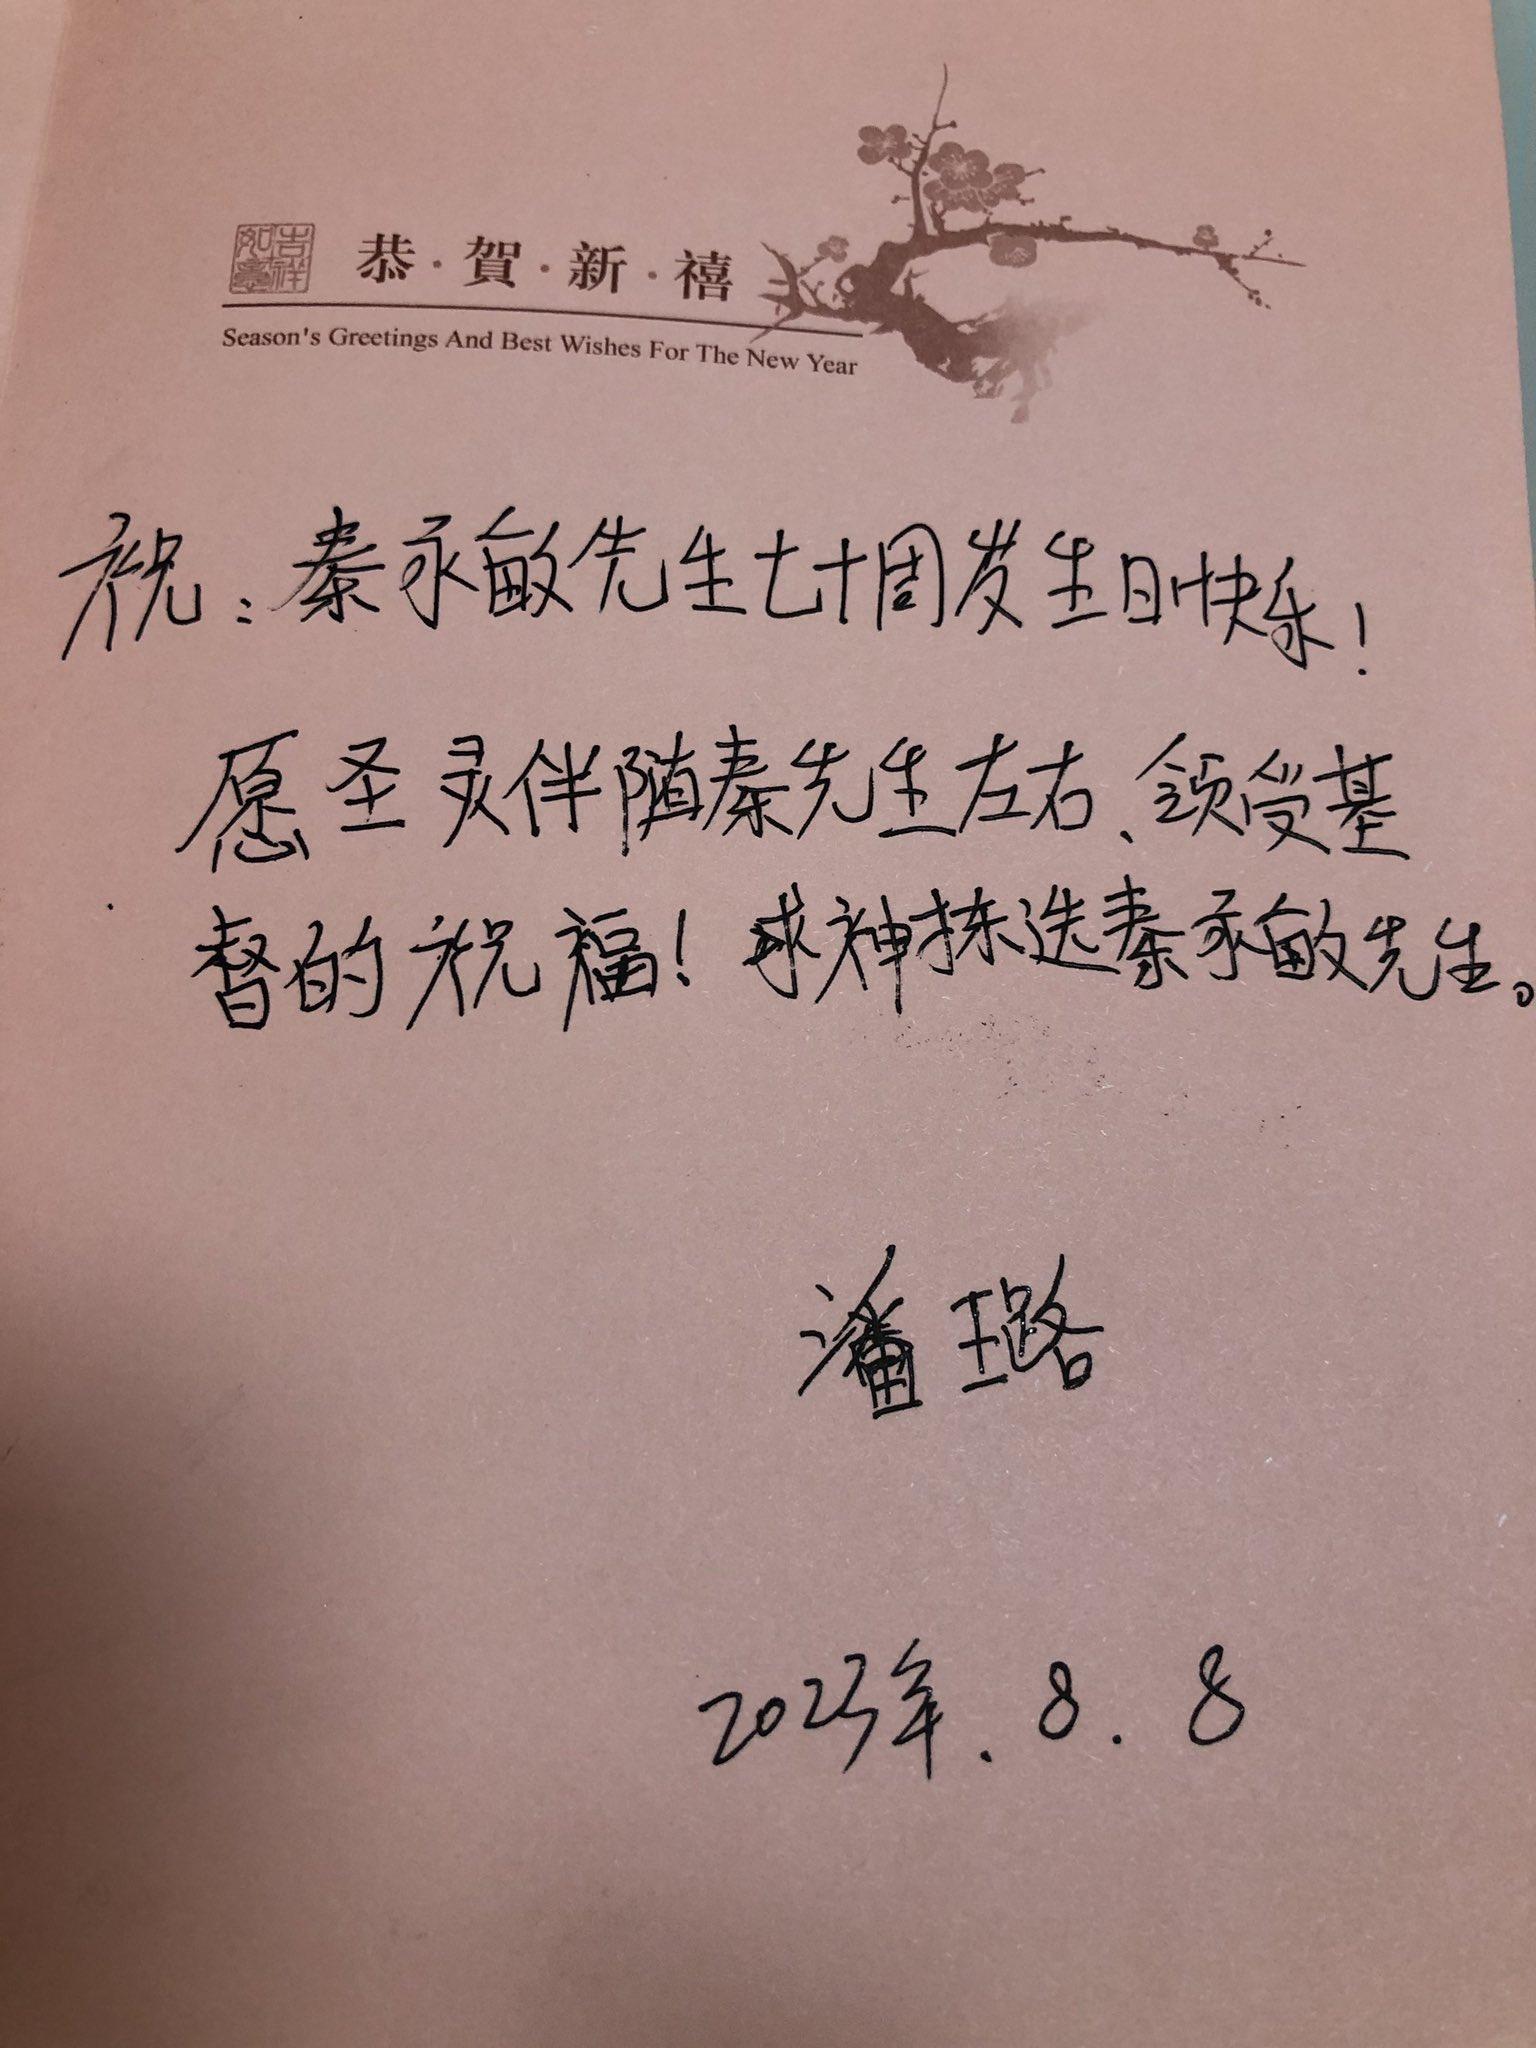 吉祥如意
恭·賀·新·禧
Season's Greetings And Best Wishes For The New Year
祝：秦永敏先生七十周岁生日快乐！
愿圣灵伴随秦先生左右、领受基
督的祝福！求神拣选秦永敏先生。
潘璐
2023年.8.8